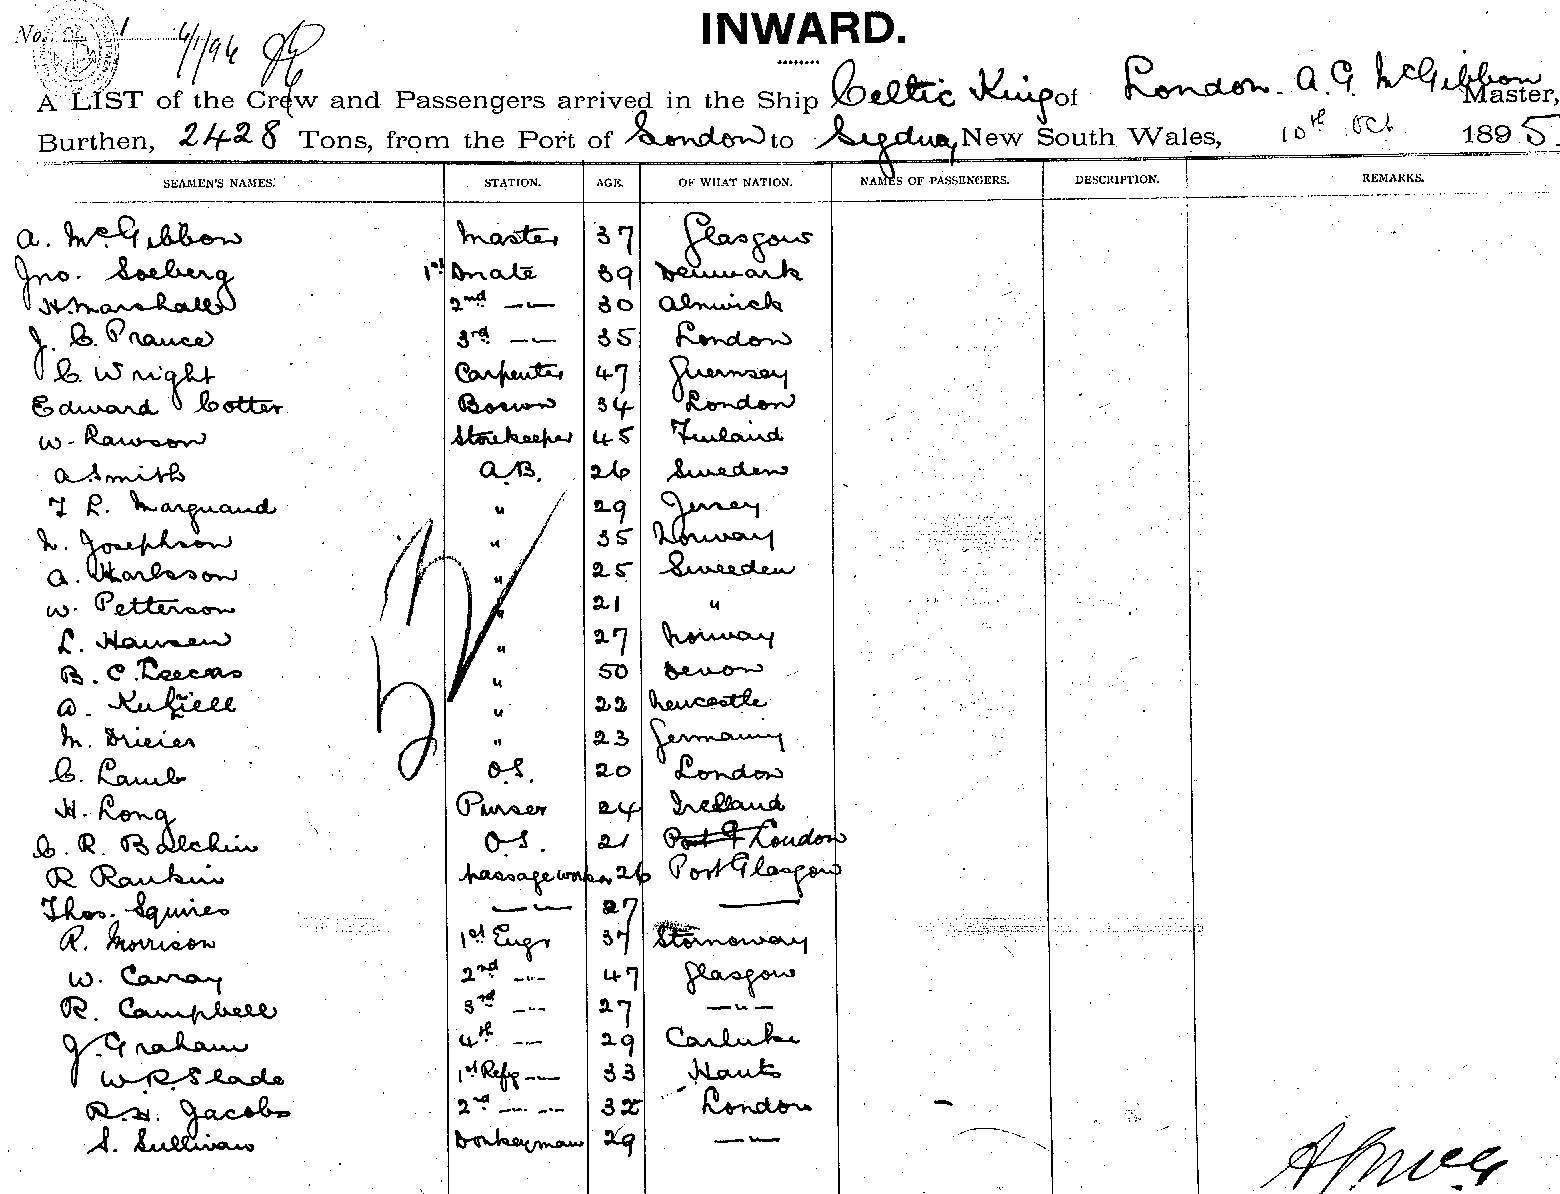 No. 1 6/1/96
INWARD.
A LIST of the Crew and Passengers arrived in the Ship Celtic King of London. A. G. McGibbon Master,
Burthen, 2428 Tons, from the Port of London to Sydney, New South Wales, 10th Oct 1895.
SEAMEN'S NAMES. STATION. AGE. OF WHAT NATION. NAMES OF PASSENGERS. DESCRIPTION. REMARKS.
A. McGibbon Master 37 Glasgow
Jno. Soeberg 1st Mate 39 Denmark
H. Marshall 2nd —"— 30 Alnwick
J. C. Prance 3rd —"— 35 London
C. Wright Carpenter 47 Guernsey
Edward Cotter Bosun 34 London
W. Rawson Storekeeper 45 Finland
A Smith A.B. 26 Sweden
F L. Marquand " 29 Jersey
N. Josephson " 35 Norway
A. Karlsson " 25 Sweeden
W. Petterson " 21 "
L. Hansen " 27 Norway
B. C. " 50 Devon
A. " 22 Newcastle
M. " 23 Germany
C. Lamb O.S. 20 London
H. Long Purser 24 Ireland
C. R. Balchin O.S. 21 Port G London
R Rankin passage worker 26 Port Glasgow
Thos. Squires —"— 27 ——
R. Morrison 1st Engr 37 Stornoway
W. Carray 2nd —"— 47 Glasgow
R. Campbell 3rd —"— 27 —"—
J. Graham 4th —"— 29 Carluke
W. R. Slade 1st Refg —"— 33 Hants
R. H. Jacobs 2nd —"— —"— 32 London
S. Sullivan Donkeyman 29 —"—
52